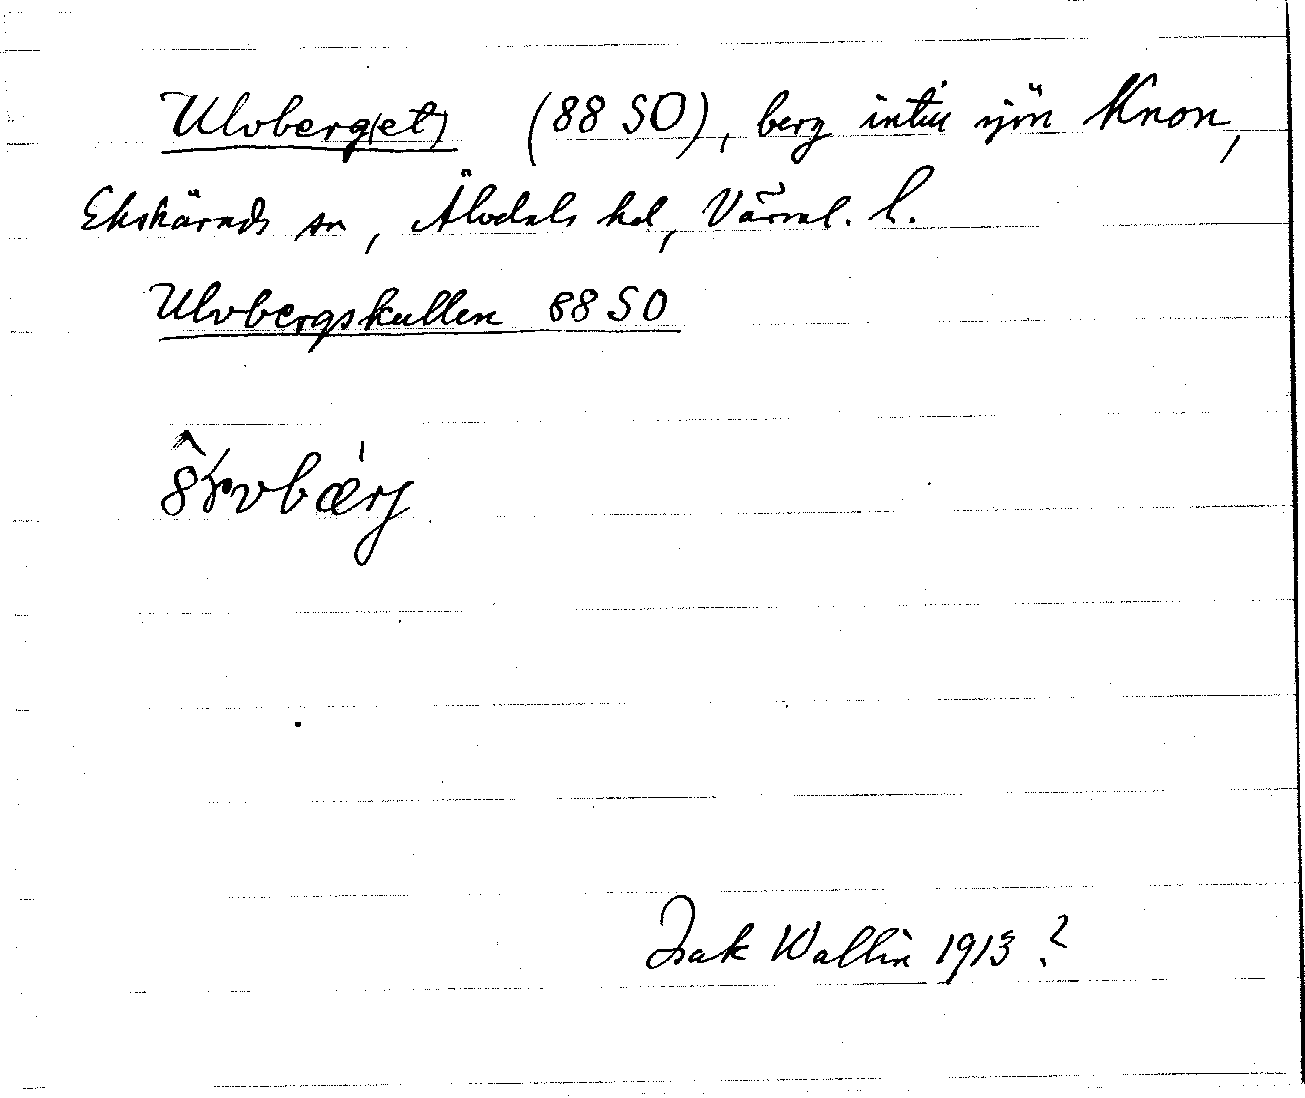 Ulvberg(et) (88 SO), berg intill sjön Knon,
Ekshärads sn, Älvdals hd, Värml. l.
Ulvbergskullen 88 SO
Isak Wallin 1913 ?